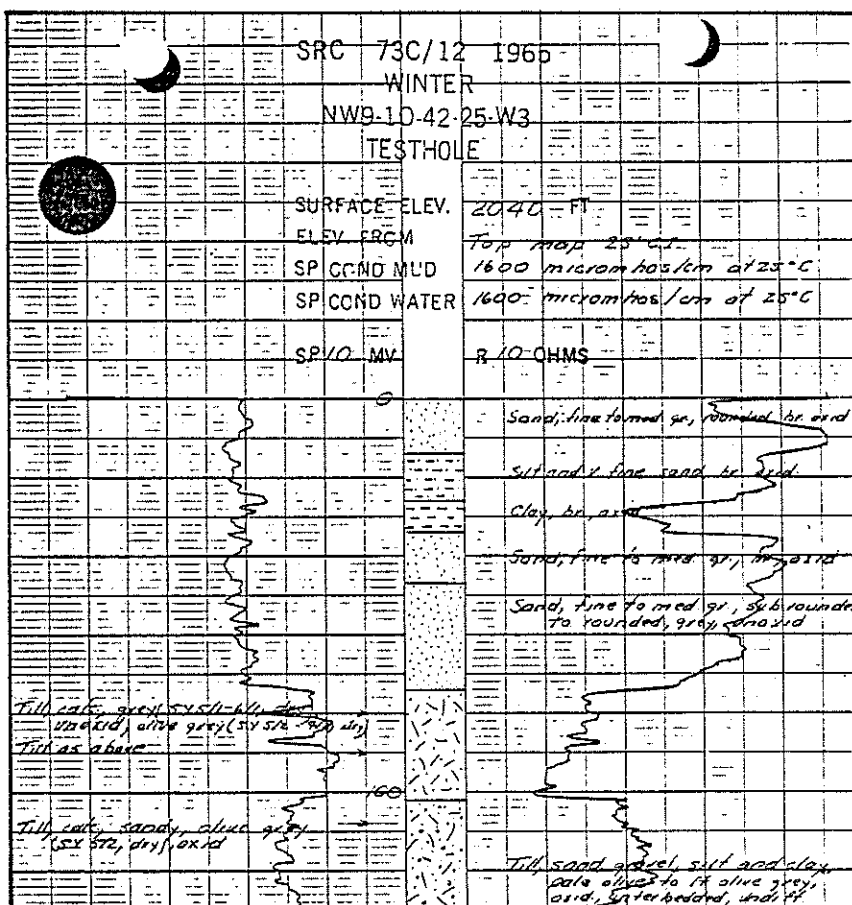 SRC 73C/12 1966
WINTER
NW9-10-42-25-W3
TESTHOLE
SURFACE ELEV. 2040 FT
ELEV FROM Top map 25' C.I.
SP COND MUD 1600 micromhos/cm at 25°C
SP COND WATER 1600 micromhos/cm at 25°C
SP 10 MV R 10 OHMS
0
Sand, fine to med gr, rounded br. oxid
Silt and v fine sand br. oxid.
Clay, br, oxid
Sand, fine to med gr., br, oxid
Sand, fine to med gr., subrounded
to rounded, grey, unoxid
Till, calc, grey (5Y5/1-6/1, dry)
unoxid, olive grey (5Y 5/2 dry)
Till as above
Till, calc, sandy, olive grey
(5Y 5/2, dry), oxid
Till, sand gravel, silt and clay,
pale olive to lt olive grey,
oxid, interbedded, undiff